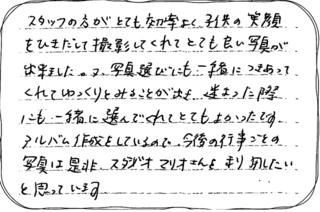 スタッフの方がとても効率よく、子供の笑顔
をひきだして撮影してくれてとても良い写真が
出来ました。又、写真選びにも一緒につきあって
くれてゆっくりとみることができ、迷まった際
にも一緒に選んでくれてとてもよかったです。
アルバム作成をしているので、今後の行事ごとの
写真は是非、スタジオマリオさんを利用したい
と思っています。